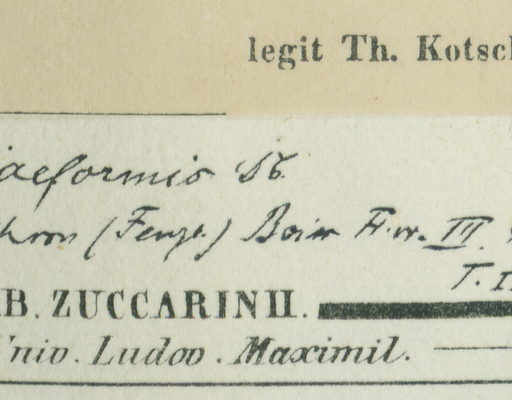 legit Th. Kotsch
aeformis
(Fenzl) Boiss III
T.
B. ZUCCARINII.
Univ. Ludov. Maximil.